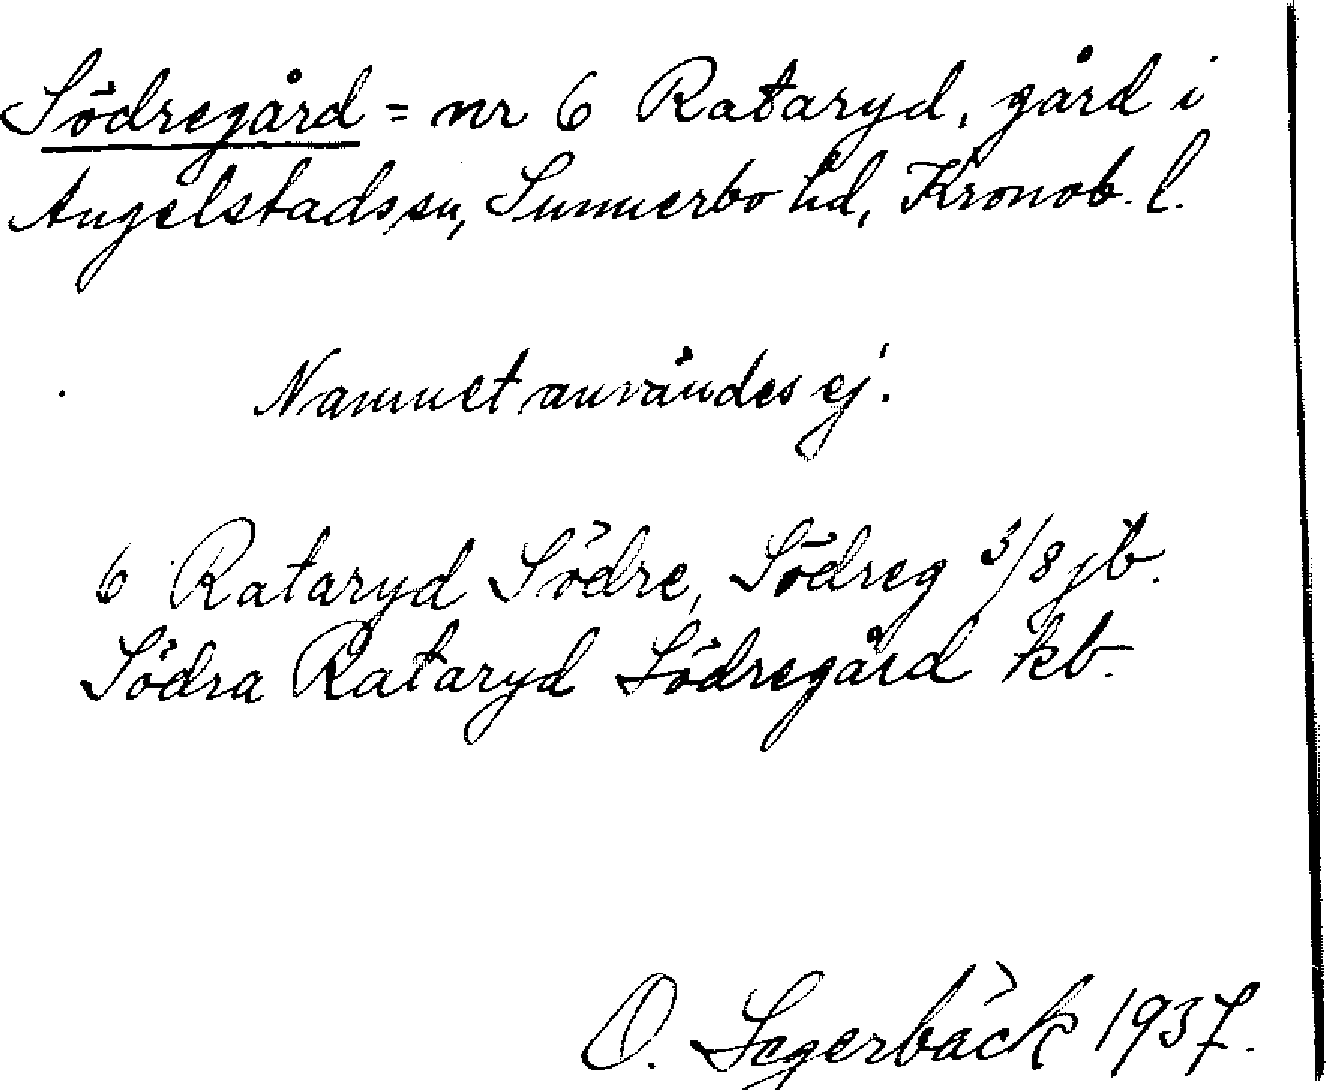 Södregård = nr 6 Rataryd, gård i
Angelstads sn, Sunnerbo hd, Kronob. l.
Namnet användes ej.
6 Rataryd Södre, Södreg 3/8 jb.
Södra Rataryd Södregård kb.
O. Segerbäck 1937.